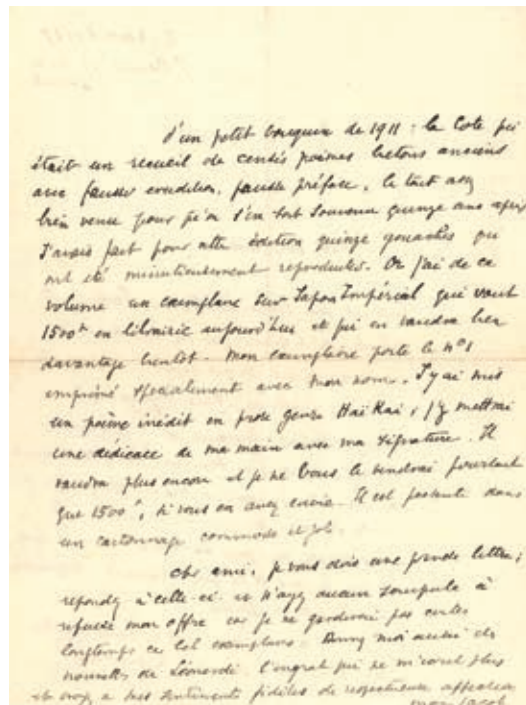 d'un petit bouquin de 1911 : la Cote qui
était un recueil de censés poèmes bretons anciens
avec fausse érudition, fausse préface, le tout assez
bien venu pour qu'on s'en soit souvenu quinze ans après
J'avais fait pour cette édition quinze gouaches qui
ont été minutieusement reproduites. Or j'ai de ce
volume un exemplaire sur Japon Impérial qui vaut
1500 f en librairie aujourd'hui et qui en vaudra bien
davantage bientôt. Mon exemplaire porte le n° 1
imprimé spécialement avec mon nom. J'y ai mis
un poème inédit en prose genre Haï Kaï, j'y mettrai
une dédicace de ma main avec ma signature. Il
vaudra plus encore et je ne vous le vendrai pourtant
que 1500 f, si vous en avez envie. Il est présenté dans
un cartonnage commode et joli.
cher ami, je vous dois une grande lettre ;
répondez à celle-ci et n'ayez aucun scrupule à
refuser mon offre car je ne garderai pas certes
longtemps ce bel exemplaire. Donnez moi aussi des
nouvelles de Léonardi l'ingrat qui ne m'écrit plus
et croyez à mes sentiments fidèles de respectueuse affection
Max Jacob